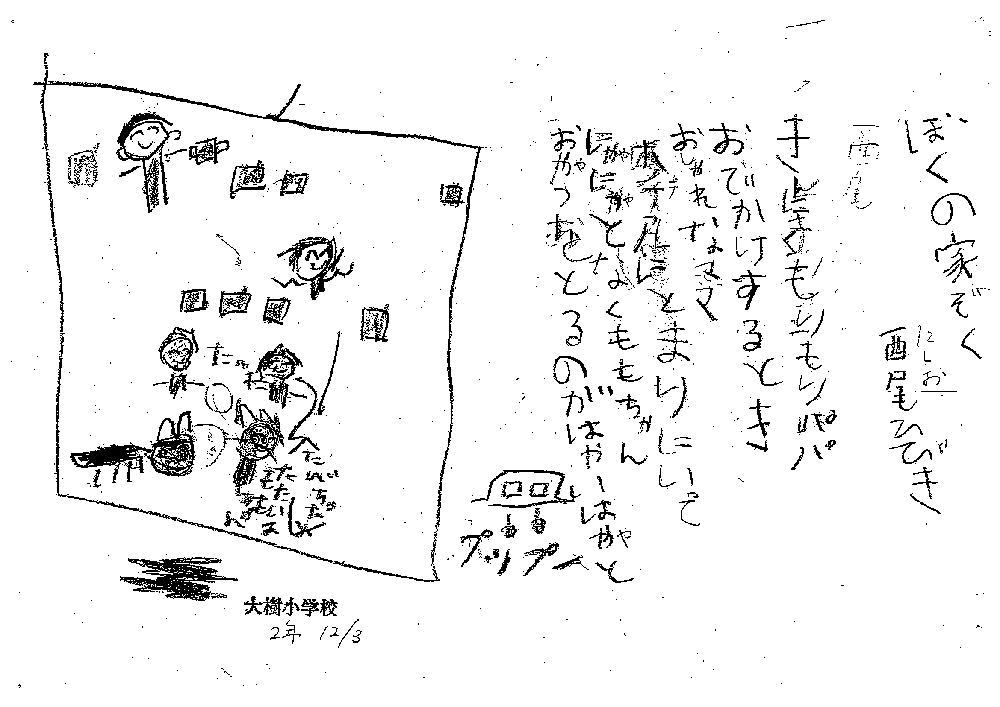 ぼくの家ぞく
にしお
西尾ひびき
西尾
もりもりパパ
おでかけするとき
おしゃれなママ
ホテルにとまりにいって
にゃにゃとなくももちゃん
おやつをとるのがはやいはやと
プップー
大樹小学校
2年 12/3